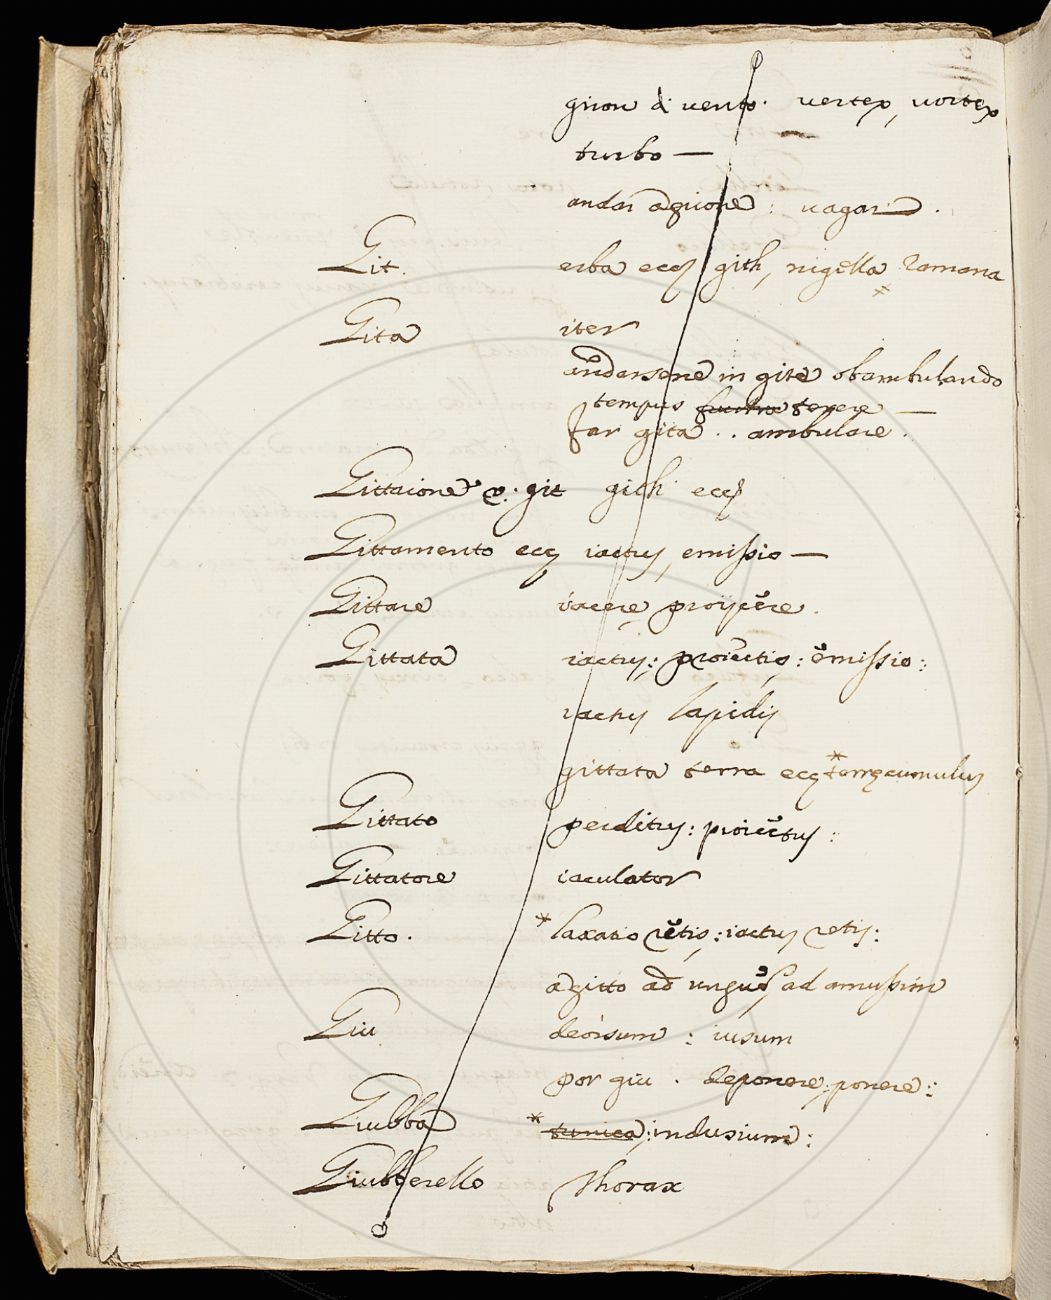 giron di vento. vertex, vortex
turbo —
andar agirone : vagari .
Git. erba ecc gith, nigella Romana
Gita iter
andarsene in gite obambulando
tempus terere —
far gita . . ambulare .
Gittaione v. git gith ecc
Gittamento ecc iactus, emissio —
Gittare iacere, proijcere .
Gittata iactus : proiectio : emissio :
iactus lapidis
gittata terra ecc * terræ cumulus
Gittato perditus : proiectus :
Gittatore iaculator
Gitto . * laxatio retis : iactus retis :
a gitto ad unguem ad amussim
Giu deorsum : iusum
por giu . deponere, ponere :
Giubba * tunica : indusium :
Giubberello thorax